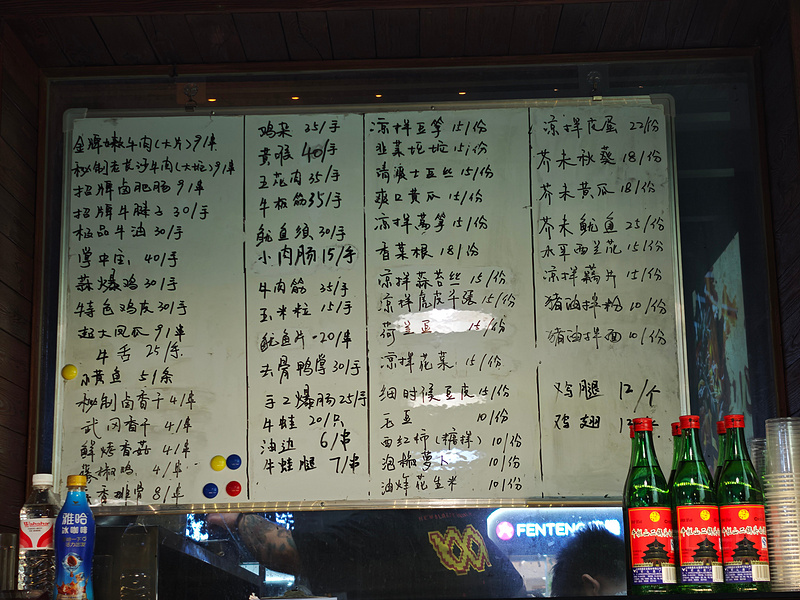 金牌嫩牛肉(大片)9/串
秘制老长沙牛肉(大坨)9/串
招牌卤肥肠 9/串
招牌牛腱子 30/手
极品牛油 30/手
掌中宝 40/手
蒜爆鸡 30/手
特色鸡皮 30/手
超大凤爪 9/串
牛舌 25/手
小黄鱼 5/条
秘制卤香干 4/串
武冈香干 4/串
鲜烤香菇 4/串
鸡 4/串
香排骨 8/串
鸡杂 25/手
黄喉 40/手
五花肉 35/手
牛板筋 35/手
鱿鱼须 30/手
小肉肠 15/手
牛肉筋 35/手
玉米粒 15/手
鱿鱼片-20/串
去骨鸭掌 30/手
手工爆肠 25/手
牛蛙 20/只
油边 6/串
牛蛙腿 7/串
凉拌豆笋 15/份
韭菜坨坨 15/份
清爽土豆丝 15/份
爽口黄瓜 15/份
凉拌莴笋 15/份
香菜根 18/份
凉拌蒜苔丝 15/份
凉拌虎皮千张 15/份
荷兰豆 15/份
凉拌花菜 15/份
细时候豆皮 15/份
毛豆 10/份
西红柿(糖拌) 10/份
泡椒萝卜 10/份
油炸花生米 10/份
凉拌皮蛋 22/份
芥末秋葵 18/份
芥末黄瓜 18/份
芥末鱿鱼 25/份
水军西兰花 15/份
凉拌藕片 15/份
猪油拌粉 10/份
猪油拌面 10/份
鸡腿 12/个
鸡翅
雅哈
冰咖啡
FENTENG